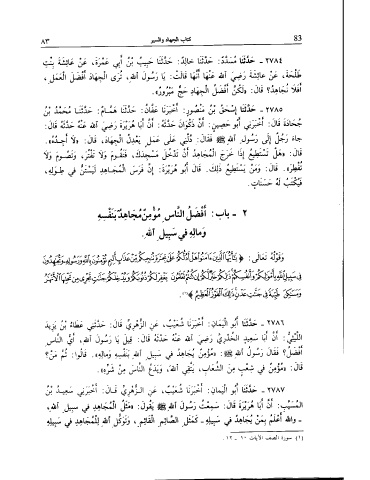 83 كتاب الجهاد والسير ٨٣
٢٧٨٤ - حَدَّثَنَا مُسَدَّدٌ: حَدَّثَنَا خَالِدٌ: حَدَّثَنَا حَبِيبُ بْنُ أَبِي عَمْرَةَ، عَنْ عَائِشَةَ بِنْتِ
طَلْحَةَ، عَنْ عَائِشَةَ رَضِيَ اللهُ عَنْهَا أَنَّهَا قَالَتْ: يَا رَسُولَ اللهِ، تُرَى الْجِهَادَ أَفْضَلَ الْعَمَلِ،
أَفَلَا نُجَاهِدُ؟ قَالَ: «لٰكِنَّ أَفْضَلَ الْجِهَادِ حَجٌّ مَبْرُورٌ».
٢٧٨٥ - حَدَّثَنَا إِسْحٰقُ بْنُ مَنْصُورٍ: أَخْبَرَنَا عَفَّانُ: حَدَّثَنَا هَمَّامٌ: حَدَّثَنَا مُحَمَّدُ بْنُ
جُحَادَةَ قَالَ: أَخْبَرَنِي أَبُو حَصِينٍ: أَنَّ ذَكْوَانَ حَدَّثَهُ: أَنَّ أَبَا هُرَيْرَةَ رَضِيَ اللهُ عَنْهُ حَدَّثَهُ قَالَ:
جَاءَ رَجُلٌ إِلَى رَسُولِ اللهِ ﷺ فَقَالَ: دُلَّنِي عَلَى عَمَلٍ يَعْدِلُ الْجِهَادَ، قَالَ: «لَا أَجِدُهُ»،
قَالَ: «هَلْ تَسْتَطِيعُ إِذَا خَرَجَ الْمُجَاهِدُ أَنْ تَدْخُلَ مَسْجِدَكَ، فَتَقُومَ وَلَا تَفْتُرَ، وَتَصُومَ وَلَا
تُفْطِرَ». قَالَ: وَمَنْ يَسْتَطِيعُ ذٰلِكَ. قَالَ أَبُو هُرَيْرَةَ: إِنَّ فَرَسَ الْمُجَاهِدِ لَيَسْتَنُّ فِي طِوَلِهِ،
فَيُكْتَبُ لَهُ حَسَنَاتٍ.
٢ - باب: أَفْضَلُ النَّاسِ مُؤْمِنٌ مُجَاهِدٌ بِنَفْسِهِ
وَمَالِهِ فِي سَبِيلِ اللهِ.
وَقَوْلُهُ تَعَالَى: ﴿يَا أَيُّهَا الَّذِينَ ءَامَنُوا هَلْ أَدُلُّكُمْ عَلَى تِجَارَةٍ تُنْجِيكُمْ مِنْ عَذَابٍ أَلِيمٍ تُؤْمِنُونَ بِاللهِ وَرَسُولِهِ وَتُجَاهِدُونَ
فِي سَبِيلِ اللهِ بِأَمْوَالِكُمْ وَأَنْفُسِكُمْ ذَلِكُمْ خَيْرٌ لَكُمْ إِنْ كُنْتُمْ تَعْلَمُونَ يَغْفِرْ لَكُمْ ذُنُوبَكُمْ وَيُدْخِلْكُمْ جَنَّاتٍ تَجْرِي مِنْ تَحْتِهَا الْأَنْهَارُ
وَمَسَاكِنَ طَيِّبَةً فِي جَنَّاتِ عَدْنٍ ذَلِكَ الْفَوْزُ الْعَظِيمُ﴾(١)
٢٧٨٦ - حَدَّثَنَا أَبُو الْيَمَانِ: أَخْبَرَنَا شُعَيْبٌ، عَنِ الزُّهْرِيِّ قَالَ: حَدَّثَنِي عَطَاءُ بْنُ يَزِيدَ
اللَّيْثِيُّ: أَنَّ أَبَا سَعِيدٍ الْخُدْرِيَّ رَضِيَ اللهُ عَنْهُ حَدَّثَهُ قَالَ: قِيلَ: يَا رَسُولَ اللهِ، أَيُّ النَّاسِ
أَفْضَلُ؟ فَقَالَ رَسُولُ اللهِ ﷺ: «مُؤْمِنٌ يُجَاهِدُ فِي سَبِيلِ اللهِ بِنَفْسِهِ وَمَالِهِ». قَالُوا: ثُمَّ مَنْ؟
قَالَ: «مُؤْمِنٌ فِي شِعْبٍ مِنَ الشِّعَابِ، يَتَّقِي اللهَ، وَيَدَعُ النَّاسَ مِنْ شَرِّهِ».
٢٧٨٧ - حَدَّثَنَا أَبُو الْيَمَانِ: أَخْبَرَنَا شُعَيْبٌ، عَنِ الزُّهْرِيِّ قَالَ: أَخْبَرَنِي سَعِيدُ بْنُ
الْمُسَيَّبِ: أَنَّ أَبَا هُرَيْرَةَ قَالَ: سَمِعْتُ رَسُولَ اللهِ ﷺ يَقُولُ: «مَثَلُ الْمُجَاهِدِ فِي سَبِيلِ اللهِ،
- وَاللهُ أَعْلَمُ بِمَنْ يُجَاهِدُ فِي سَبِيلِهِ - كَمَثَلِ الصَّائِمِ الْقَائِمِ، وَتَوَكَّلَ اللهُ لِلْمُجَاهِدِ فِي سَبِيلِهِ
(١) سورة الصف الآيات ١٠ - ١٢.